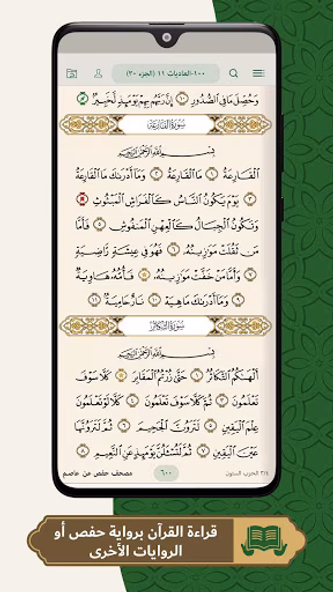 ١٠٠-العاديات ١١ (الجزء ٣٠)
وَحُصِّلَ مَا فِي ٱلصُّدُورِ ١٠ إِنَّ رَبَّهُم بِهِمۡ يَوۡمَئِذٖ لَّخَبِيرُۢ ١١
سُورَةُ القَارِعَةِ
بِسۡمِ ٱللَّهِ ٱلرَّحۡمَٰنِ ٱلرَّحِيمِ
ٱلۡقَارِعَةُ ١ مَا ٱلۡقَارِعَةُ ٢ وَمَآ أَدۡرَىٰكَ مَا ٱلۡقَارِعَةُ
٣ يَوۡمَ يَكُونُ ٱلنَّاسُ كَٱلۡفَرَاشِ ٱلۡمَبۡثُوثِ ٤
وَتَكُونُ ٱلۡجِبَالُ كَٱلۡعِهۡنِ ٱلۡمَنفُوشِ ٥ فَأَمَّا
مَن ثَقُلَتۡ مَوَٰزِينُهُۥ ٦ فَهُوَ فِي عِيشَةٖ رَّاضِيَةٖ
٧ وَأَمَّا مَنۡ خَفَّتۡ مَوَٰزِينُهُۥ ٨ فَأُمُّهُۥ هَاوِيَةٞ
٩ وَمَآ أَدۡرَىٰكَ مَا هِيَهۡ ١٠ نَارٌ حَامِيَةُۢ ١١
سُورَةُ التَّكَاثُرِ
بِسۡمِ ٱللَّهِ ٱلرَّحۡمَٰنِ ٱلرَّحِيمِ
أَلۡهَىٰكُمُ ٱلتَّكَاثُرُ ١ حَتَّىٰ زُرۡتُمُ ٱلۡمَقَابِرَ ٢ كَلَّا سَوۡفَ
تَعۡلَمُونَ ٣ ثُمَّ كَلَّا سَوۡفَ تَعۡلَمُونَ ٤ كَلَّا لَوۡ تَعۡلَمُونَ
عِلۡمَ ٱلۡيَقِينِ ٥ لَتَرَوُنَّ ٱلۡجَحِيمَ ٦ ثُمَّ لَتَرَوُنَّهَا
عَيۡنَ ٱلۡيَقِينِ ٧ ثُمَّ لَتُسۡـَٔلُنَّ يَوۡمَئِذٍ عَنِ ٱلنَّعِيمِ ٨
٣/٤ الحزب الستون ٦٠٠ مصحف حفص عن عاصم
قراءة القرآن برواية حفص أو
الروايات الأخرى